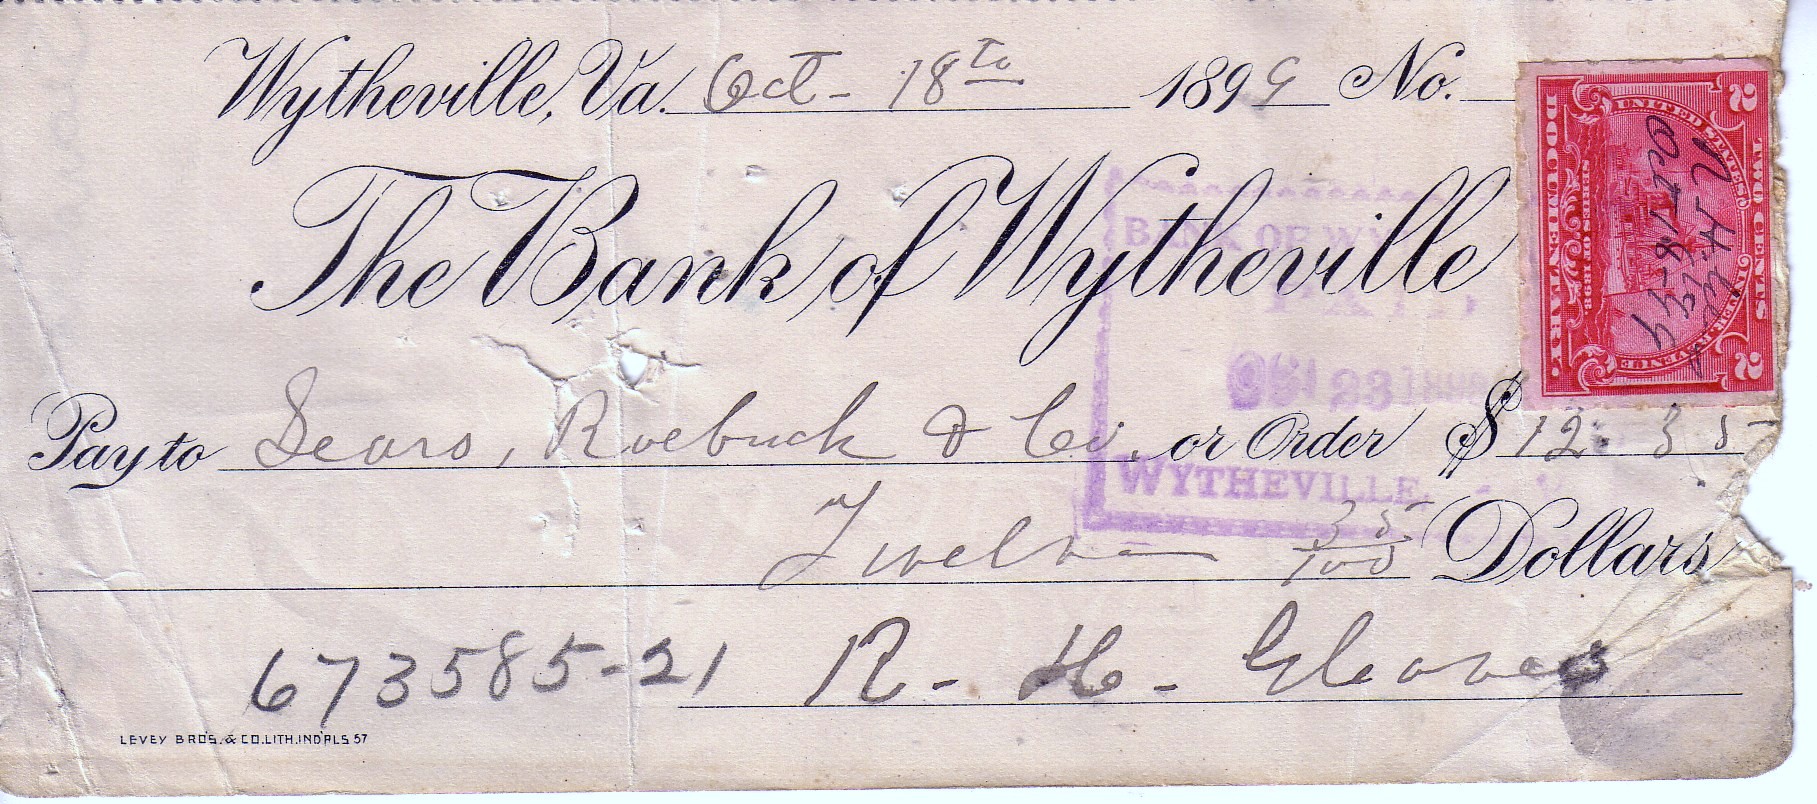 Wytheville, Va. Oct - 18th 1899 No.
The Bank of Wytheville
BANK OF WY
PAID
OCT 23
WYTHEVILLE
Pay to Sears, Roebuck & Co. or Order $ 12.35
Twelve 35/100 Dollars
673585-21 R. H. Gleaves
LEVEY BRO'S. & CO. LITH. IND'PLS 57
UNITED STATES
INTER. REVENUE
TWO CENTS
SERIES OF 1898
DOCUMENTARY
2 2
Oct 18-99